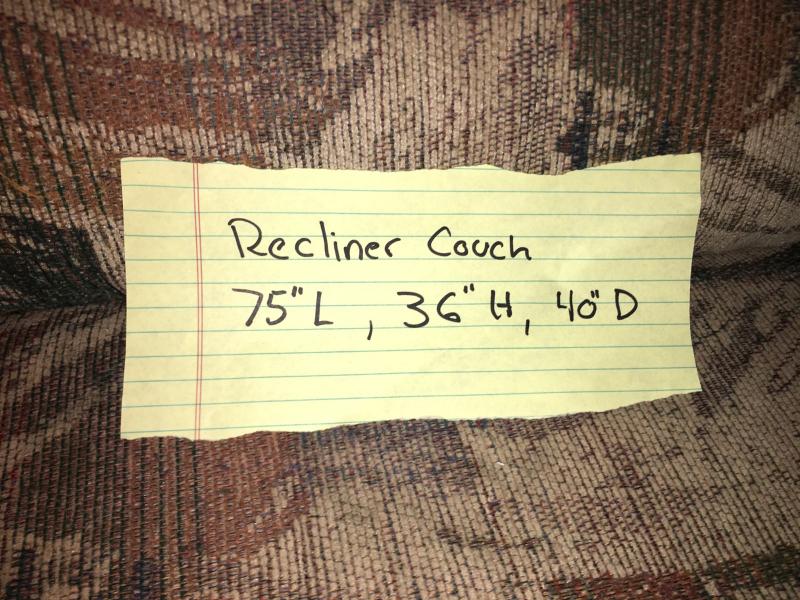 Recliner Couch
75" L , 36" H, 40" D